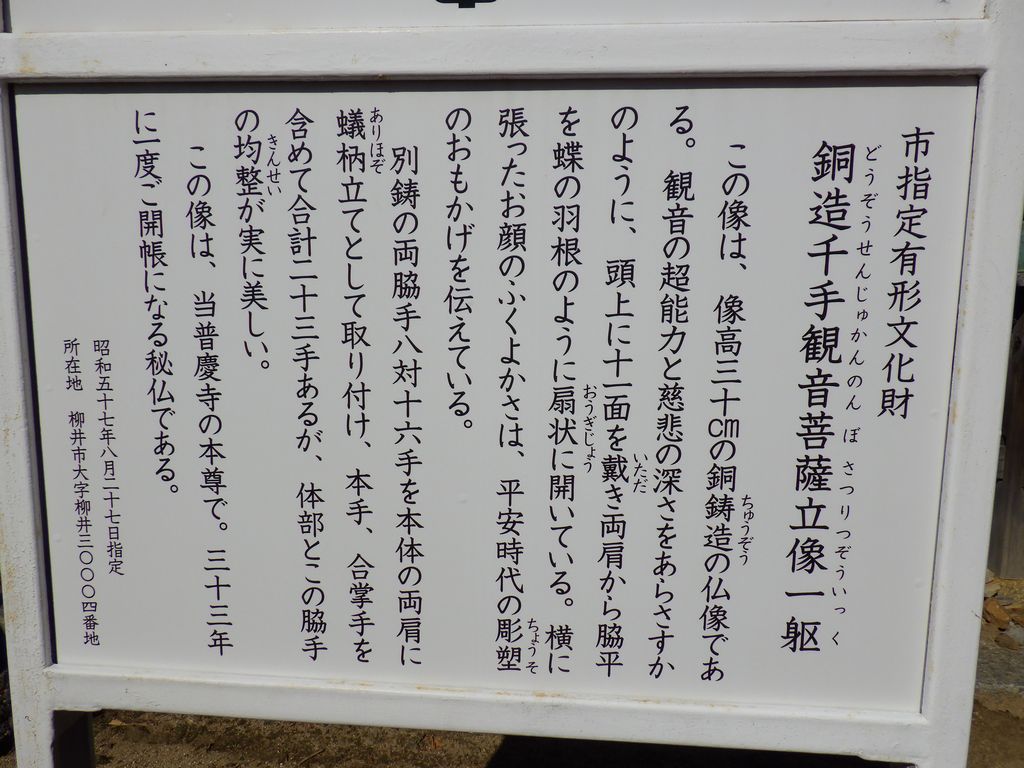 市指定有形文化財
銅造千手観音菩薩立像一躯
どうぞうせんじゅかんのんぼさつりつぞういっく
この像は、像高三十cmの銅鋳造の仏像であ
ちゅうぞう
る。観音の超能力と慈悲の深さをあらさすか
のように、頭上に十一面を戴き両肩から脇平
いただ
を蝶の羽根のように扇状に開いている。横に
おうぎじょう
張ったお顔のふくよかさは、平安時代の彫塑
ちょうそ
のおもかげを伝えている。
別鋳の両脇手八対十六手を本体の両肩に
蟻柄立てとして取り付け、本手、合掌手を
ありほぞ
含めて合計二十三手あるが、体部とこの脇手
の均整が実に美しい。
きんせい
この像は、当普慶寺の本尊で。三十三年
に一度ご開帳になる秘仏である。
昭和五十七年八月二十七日指定
所在地 柳井市大字柳井三〇〇〇四番地